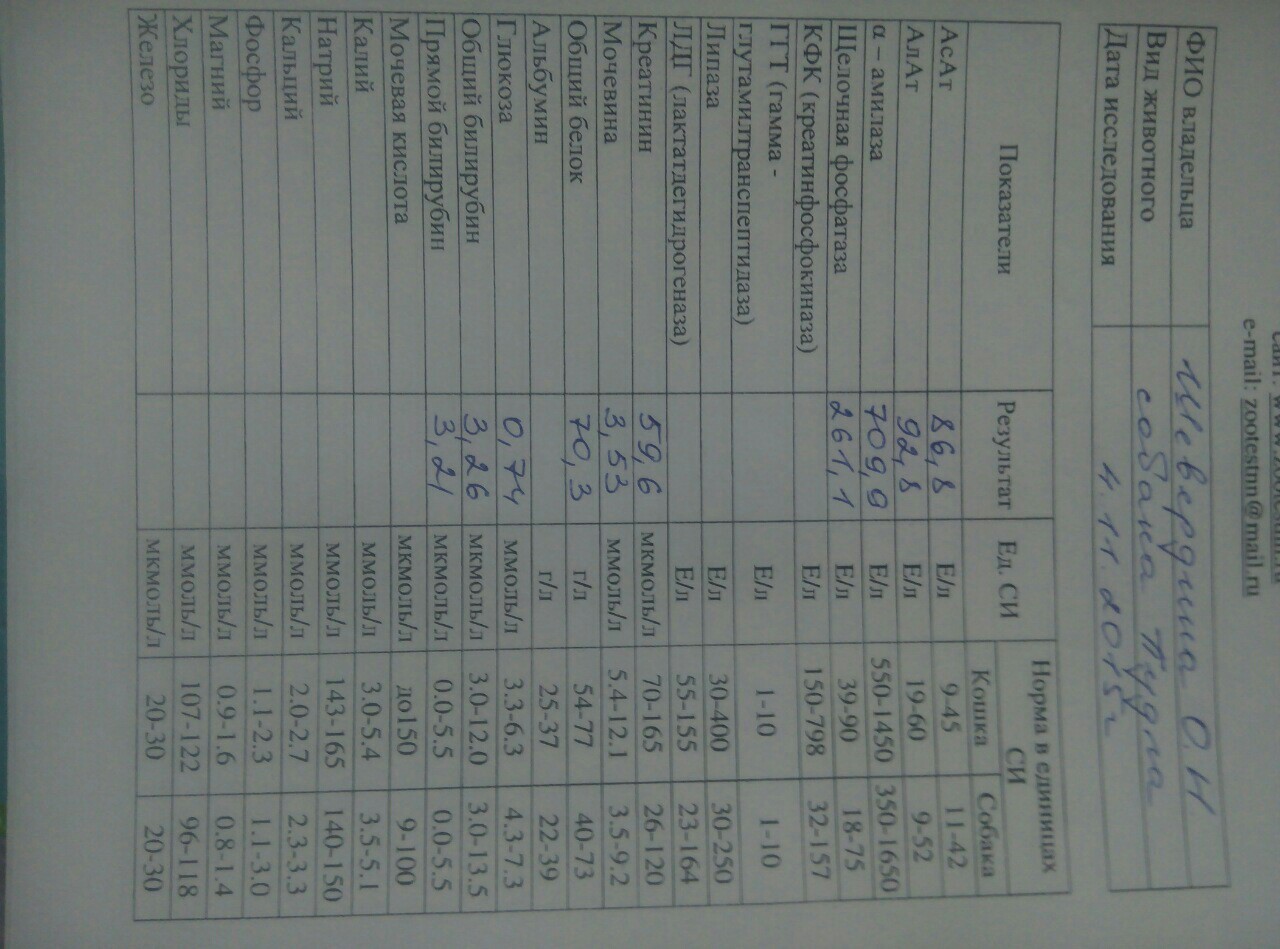 e-mail: zootestnn@mail.ru
ФИО владельца Шевердина О.Н
Вид животного собака Пудма
Дата исследования 4.11.2015г
Показатели Результат Ед. СИ Норма в единицах СИ
Кошка Собака
АсАт 86,8 Е/л 9-45 11-42
АлАт 92,8 Е/л 19-60 9-52
α – амилаза 709,9 Е/л 550-1450 350-1650
Щелочная фосфатаза 261,1 Е/л 39-90 18-75
КФК (креатинфосфокиназа) Е/л 150-798 32-157
ГГТ (гамма - глутамилтранспептидаза) Е/л 1-10 1-10
Липаза Е/л 30-400 30-250
ЛДГ (лактатдегидрогеназа) Е/л 55-155 23-164
Креатинин 59,6 мкмоль/л 70-165 26-120
Мочевина 3,53 ммоль/л 5.4-12.1 3.5-9.2
Общий белок 70,3 г/л 54-77 40-73
Альбумин г/л 25-37 22-39
Глюкоза 0,74 ммоль/л 3.3-6.3 4.3-7.3
Общий билирубин 3,26 мкмоль/л 3.0-12.0 3.0-13.5
Прямой билирубин 3,21 мкмоль/л 0.0-5.5 0.0-5.5
Мочевая кислота мкмоль/л до150 9-100
Калий ммоль/л 3.0-5.4 3.5-5.1
Натрий ммоль/л 143-165 140-150
Кальций ммоль/л 2.0-2.7 2.3-3.3
Фосфор ммоль/л 1.1-2.3 1.1-3.0
Магний ммоль/л 0.9-1.6 0.8-1.4
Хлориды ммоль/л 107-122 96-118
Железо мкмоль/л 20-30 20-30